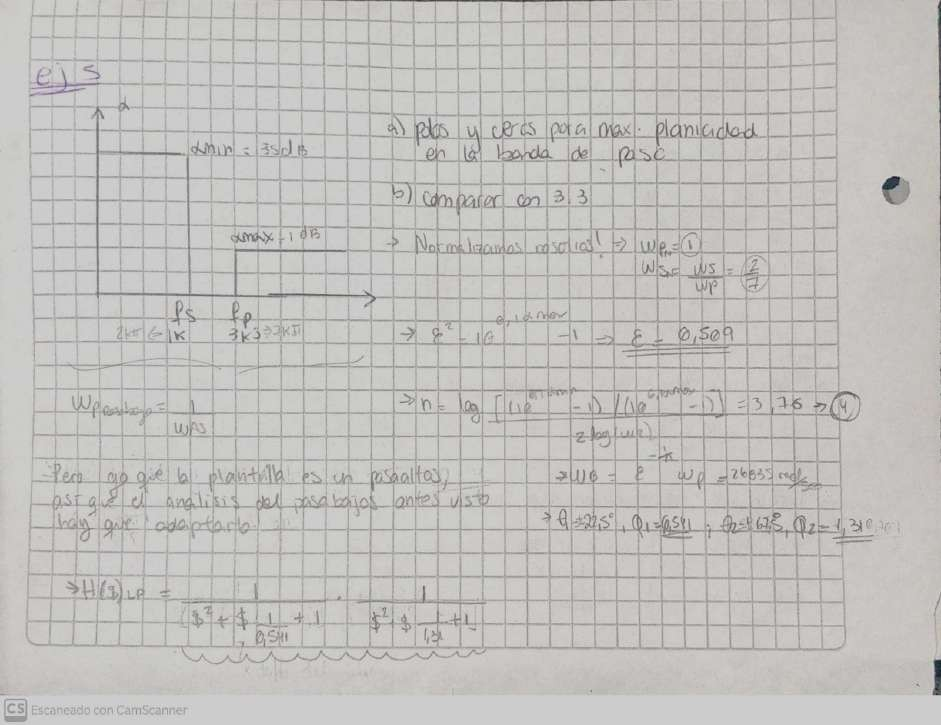 ej 5
α
αmin = 35dB
αmax = 1 dB
fs fp
2kπ ← 1K 3K5 → 7kπ
a) polos y ceros para max. planicidad
en la banda de paso
b) comparar con 3.3
→ Normalizamos
⇒ Wpn = 1
Wsn = Ws/Wp = 2/7
→ ε² = 10^0,1αmax - 1 ⇒ ε = 0,509
Wpasabajo = 1/WPA
→ n = log [(10^0,1αmin - 1) / (10^0,1αmax - 1)] = 3,76 → 4
2 log(
Pero ojo que la plantilla es un pasaaltos,
así que el análisis del pasabajos antes visto
hay que adaptarlo.
→ WB = ε^-1/n Wp = 26035 rad/seg
→ θ1=22,5°, Q1=0,541 ; θ2=67,5, Q2=1,31
→ H($)LP = 1/($² + $ 1/0,541 + 1) · 1/($² + $ 1/1,31 + 1)
CS Escaneado con CamScanner